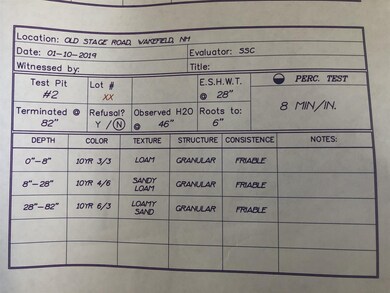 Location: OLD STAGE ROAD, WAKEFIELD, NH
Date: 01-10-2019 Evaluator: SSC
Witnessed by: Title:
Test Pit #2 Lot # XX E.S.H.W.T. @ 28" PERC. TEST 8 MIN/IN.
Terminated @ 82" Refusal? Y / N Observed H2O @ 46" Roots to: 6"
DEPTH COLOR TEXTURE STRUCTURE CONSISTENCE NOTES:
0"-8" 10YR 3/3 LOAM GRANULAR FRIABLE
8"-28" 10YR 4/6 SANDY LOAM GRANULAR FRIABLE
28"-82" 10YR 6/3 LOAMY SAND GRANULAR FRIABLE